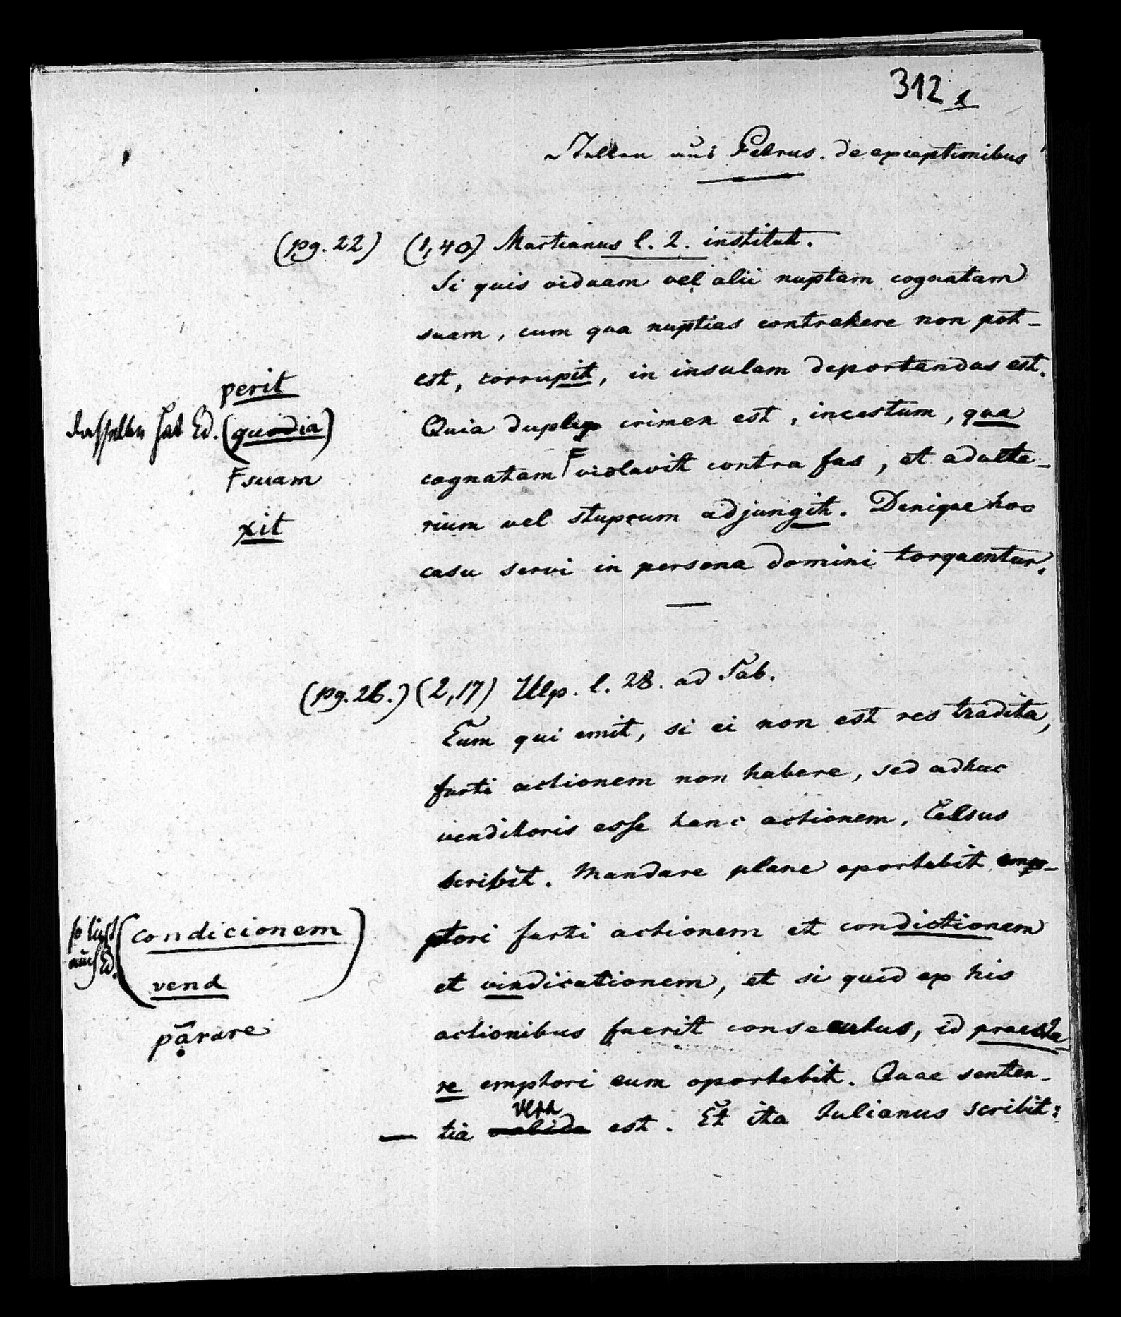 312
1
Stellen aus Petrus. de exceptionibus
(pg. 22) (1,40) Martianus l. 2. institut.
Si quis viduam vel alii nuptam cognatam
suam, cum qua nuptias contrahere non pot-
perit
est, corrupit, in insulam deportandus est.
dasselbe hat Ed. (quodia)
Quia duplex crimen est, incestum, qua
F suam
cognatam F violavit contra fas, et adulte-
xit
rium vel stuprum adjungit. Denique hoc
casu servi in persona domini torquentur.
(pg. 26.) (2,17) Ulp. l. 28. ad Sab.
Eum qui emit, si ei non est res tradita,
furti actionem non habere, sed adhuc
venditoris esse hanc actionem, Celsus
scribit. Mandare plane oportebit emp-
so liest auch Ed. (condicionem
ptori furti actionem et condictionem
vend)
et vindicationem, et si quid ex his
parare
actionibus fuerit consecutus, id praesta
re emptori eum oportebit. Quae senten-
vera
tia est. Et ita Iulianus scribit: